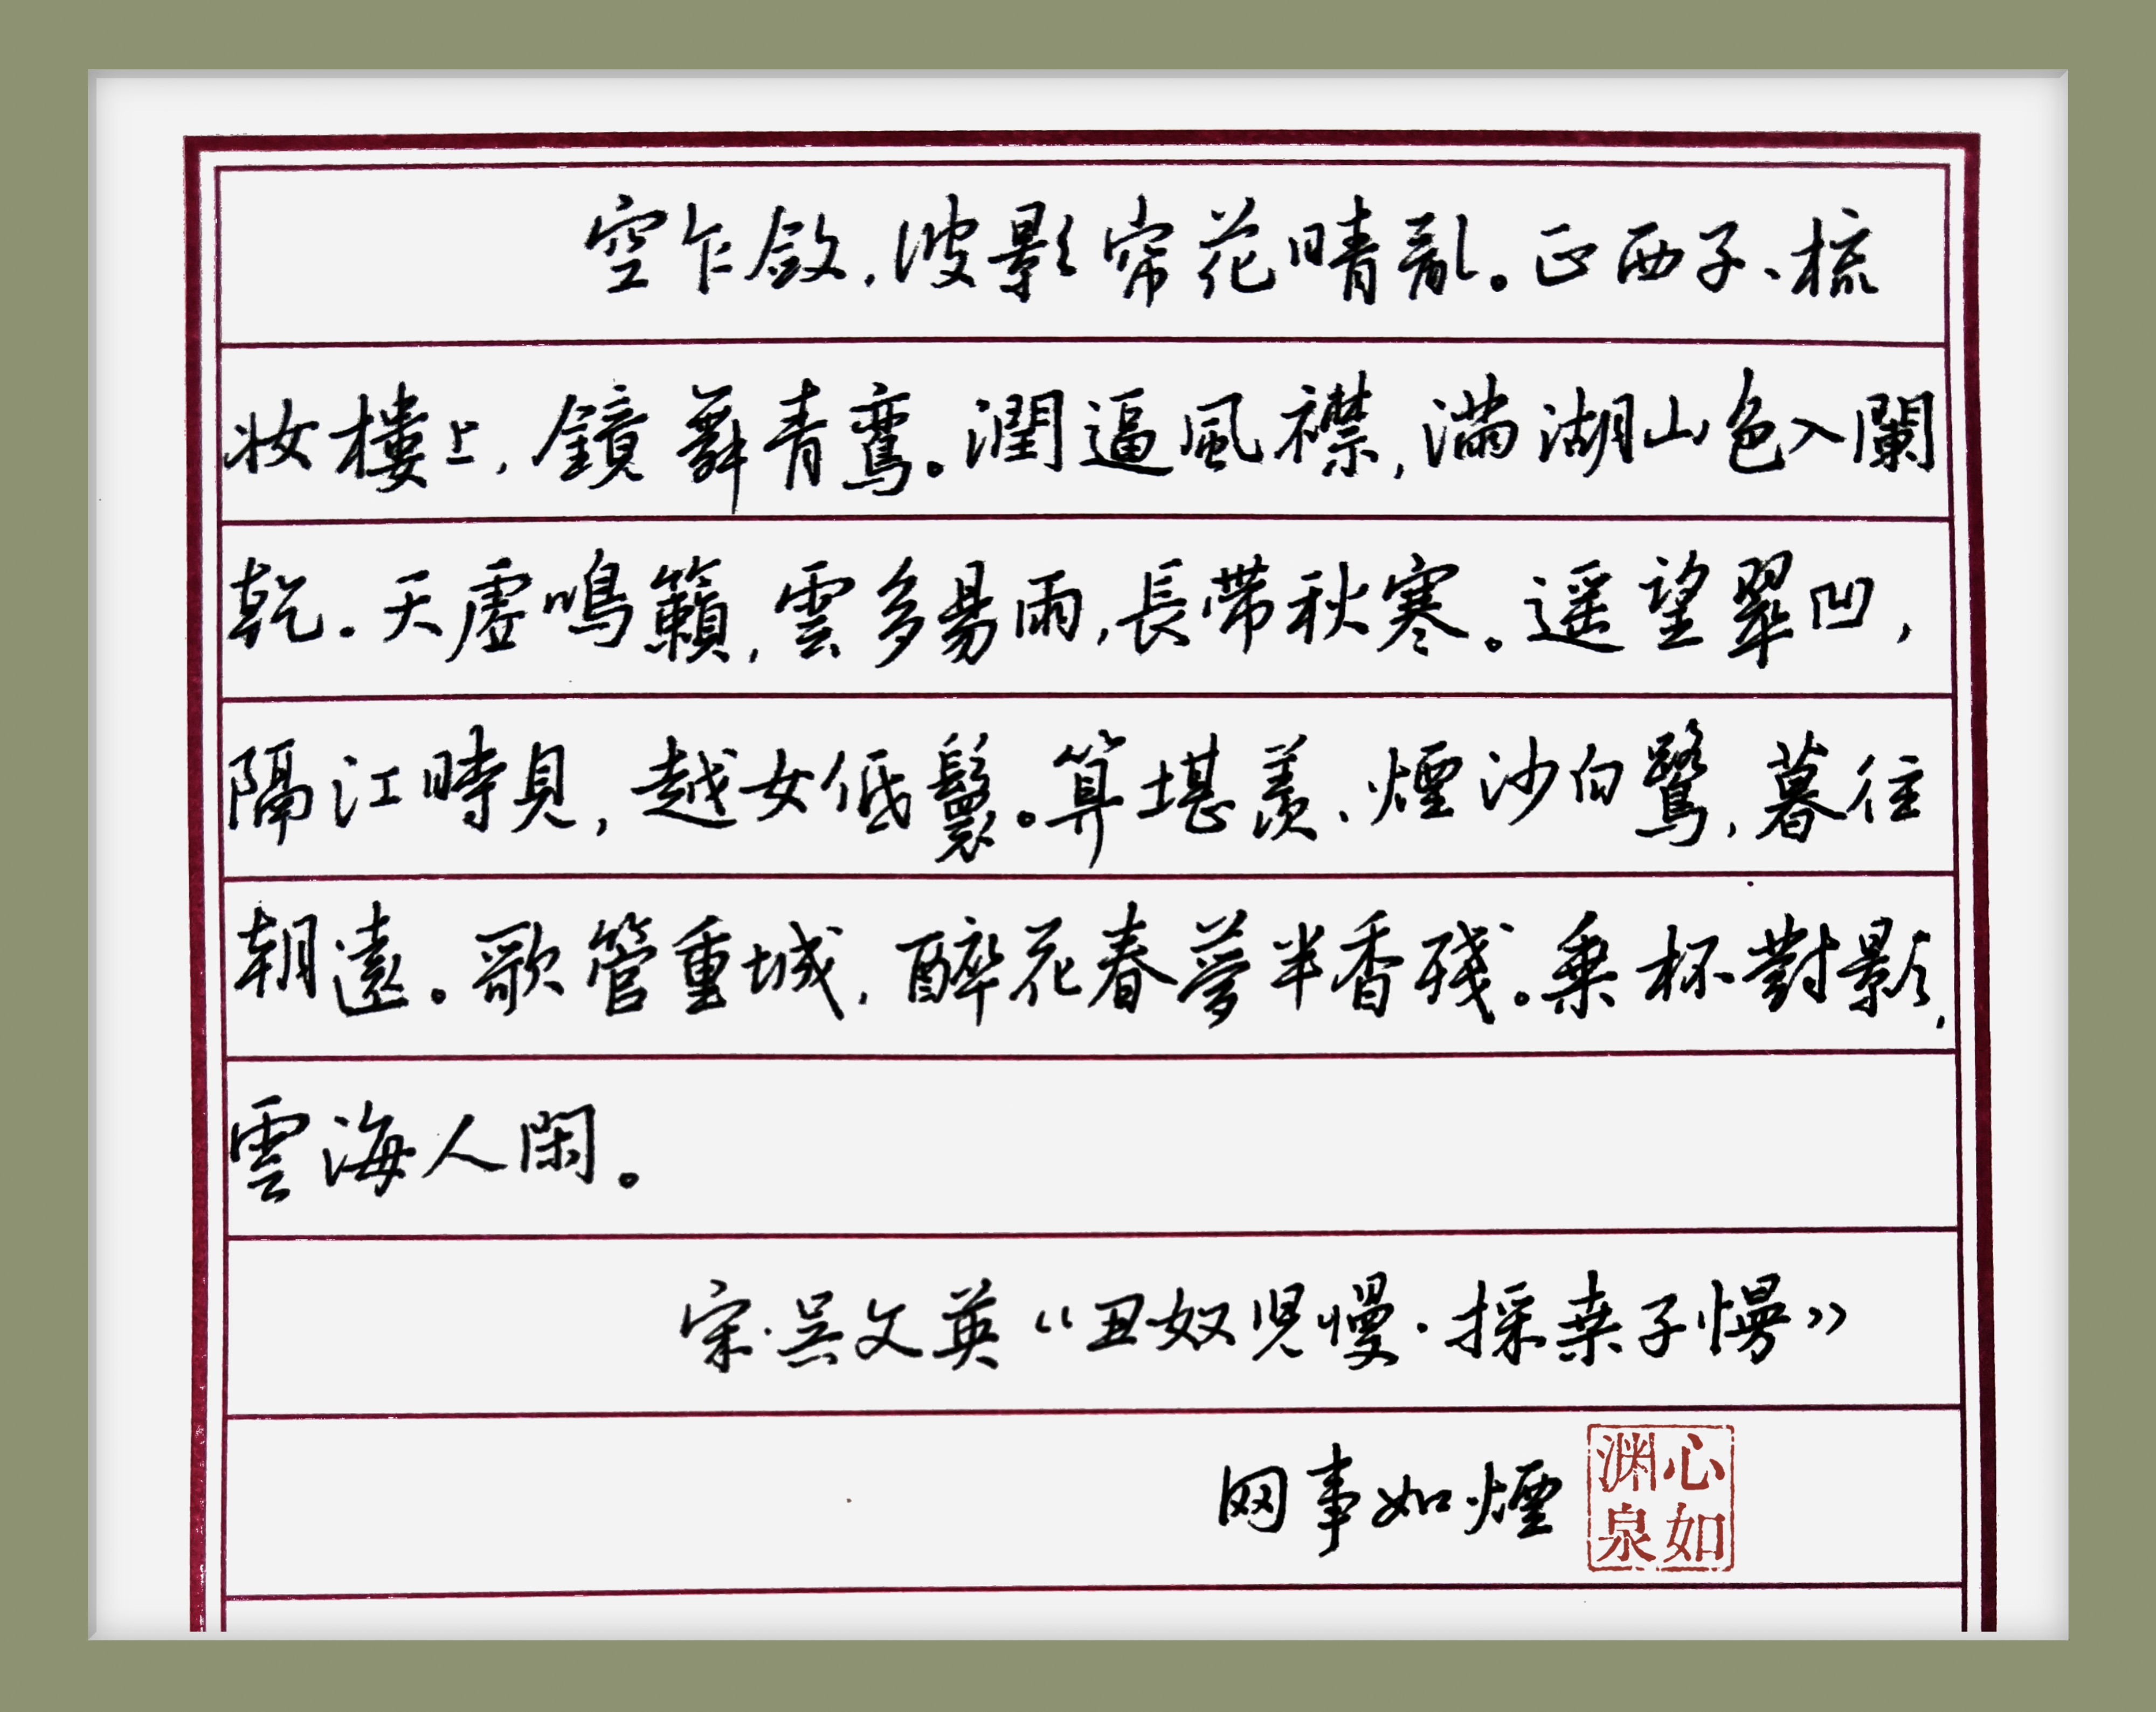 空乍斂，波影帘花晴亂。正西子、梳
妝樓上，鏡舞青鸞。潤逼風襟，滿湖山色入闌
乾。天虛鳴籟，雲多易雨，長帶秋寒。遥望翠凹，
隔江時見，越女低鬟。算堪羨、煙沙白鷺，暮往
朝還。歌管重城，醉花春夢半香殘。乗杯對影，
雲海人閑。
宋·吴文英《丑奴児慢·採桒子慢》
网事如煙
心如
渊泉